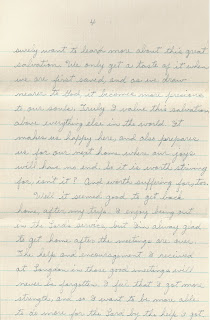 4
surely want to learn more about this great
salvation. We only get a taste of it when
we are first saved, and as we draw
nearer to God it becomes more precious
to our souls. Truly I value this salvation
above everything else in the world. It
makes us happy here, and also prepares
us for our next home where our joys
will have no end. So it is worth striving
for isn't it? And worth suffering for, too.
Well it seemed good to get back
home, after my trip. I enjoy being out
in the Lord's service but I'm always glad
to get home after the meetings are over.
The help and encouragement I received
at Langdon in those good meetings will
never be forgotten. I feel that I got more
strength, and so I want to be more able
to do more for the Lord by the help I got